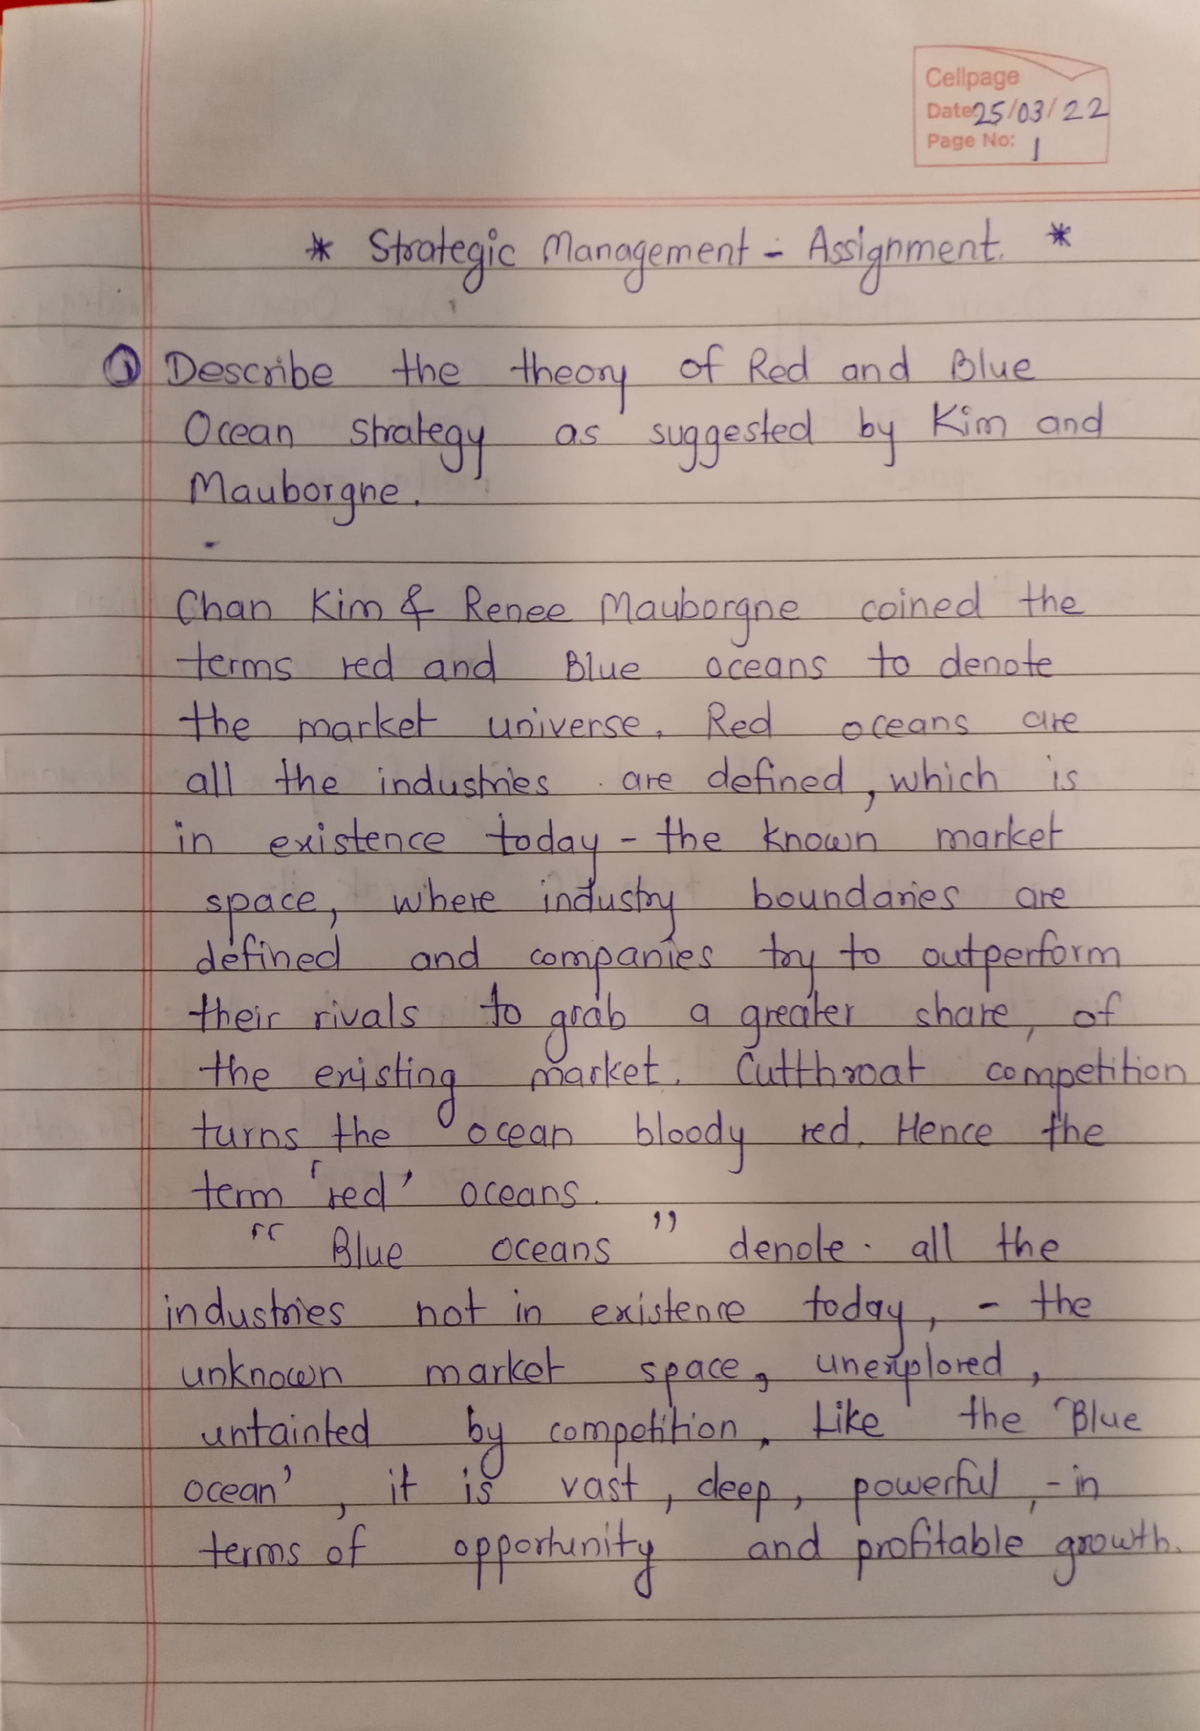 Cellpage
Date 25/03/22
Page No: 1
* Strategic Management - Assignment. *
① Describe the theory of Red and Blue
Ocean Strategy as suggested by Kim and
Mauborgne.
-
Chan Kim & Renee Mauborgne coined the
terms red and Blue oceans to denote
the market universe. Red oceans are
all the industries are defined, which is
in existence today - the known market
space, where industry boundaries are
defined and companies try to outperform
their rivals to grab a greater share, of
the existing market. Cutthroat competition
turns the ocean bloody red. Hence the
term 'red' oceans.
"Blue oceans" denote all the
industries not in existence today, - the
unknown market space, unexplored,
untainted by competition. Like the 'Blue
ocean', it is vast, deep, powerful, - in
terms of opportunity and profitable growth.